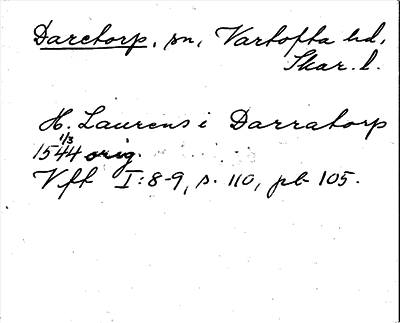 Daretorp, sn, Vartofta hd,
Skar. l.
H. Laurens i Darratorp
1/3
1544 orig.
Vft I:8-9, s. 110, pb 105.